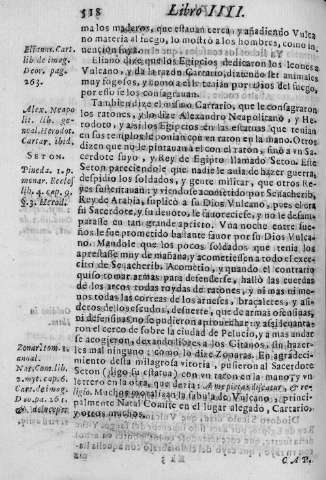 518 Libro IIII.
ma los maderos, que estauan cerca; y añadiendo Vulca
no materia al fuego, lo mostró a los hombres, como in
uencion suya.
Eliano dize que los Egipcios dedicaron los leones a
Vulcano, y da la razon Cartario, diziendo ser animales
muy fogosos, y como a el le tenian por Dios del fuego,
por esso se los consagrauan.
Tambien dize el mismo Cartario, que le consagraron
los ratones, y lo dize Alexandro Neapolitano, y He-
rodoto, y assi los Egipcios en las estatuas que tenian
en sus templos le pintauan con vn raton en la mano. Otros
dizen que no le pintauan a el con el raton, sino a vn Sa-
cerdote suyo, y Rey de Egipto llamado Seton. Este
Seton pareciendole que nadie le auia de hazer guerra,
despidio los soldados, y gente militar, que otros Re-
yes sustentauan; y viendose acometido por Senacherib,
Rey de Arabia, suplicó a su Dios Vulcano, pues era
su Sacerdote, y su deuoto, le fauoreciesse, y no le desam-
parasse en tan grande aprieto. Vna noche entre sue-
ños le fue prometido bastante fauor por su Dios Vulca-
no. Mandole que los pocos soldados que tenia los
aprestasse muy de mañana, y acometiesse a todo el exerci-
to de Senacherib. Acometio, y quando el contrario
quiso tomar armas para defenderse, halló las cuerdas
de los arcos todas roydas de ratones, y ni mas ni me-
nos todas las correas de los arneses, braçaletes, y asi-
deros de los escudos, desuerte, que de armas ofensiuas,
ni defensiuas no se pudieron aprouechar: y assi leuanta-
ron el cerco de sobre la ciudad de Pelucio, y a mas andar
se acogieron, dexando libres a los Gitanos, sin hazer-
les mal ninguno; como lo dize Zonaras. En agradeci-
miento desta milagrosa vitoria, pusieron al Sacerdote
Seton (digo su estatua) con vn raton en la mano, y vn
letrero en la otra, que dezia: A me pietas discatur, & re-
ligio. Muchos moralizan la fabula de Vulcano, princi-
palmente Natal Comite en el lugar alegado, Cartario,
y otros muchos.
CAP.
Alex. Neapo-
lit. lib. ge-
nial. Herodot.
Cartar. ibid.
SETON.
Pineda. 1. p.
monar. Ecclesi.
lib. 4. cap. 9.
§. 3. Herod.
Zonar. tom. 1.
annal.
Nat. Com. lib.
2. myt. cap. 6.
Cart. de imag.
Deo. pa. 261.